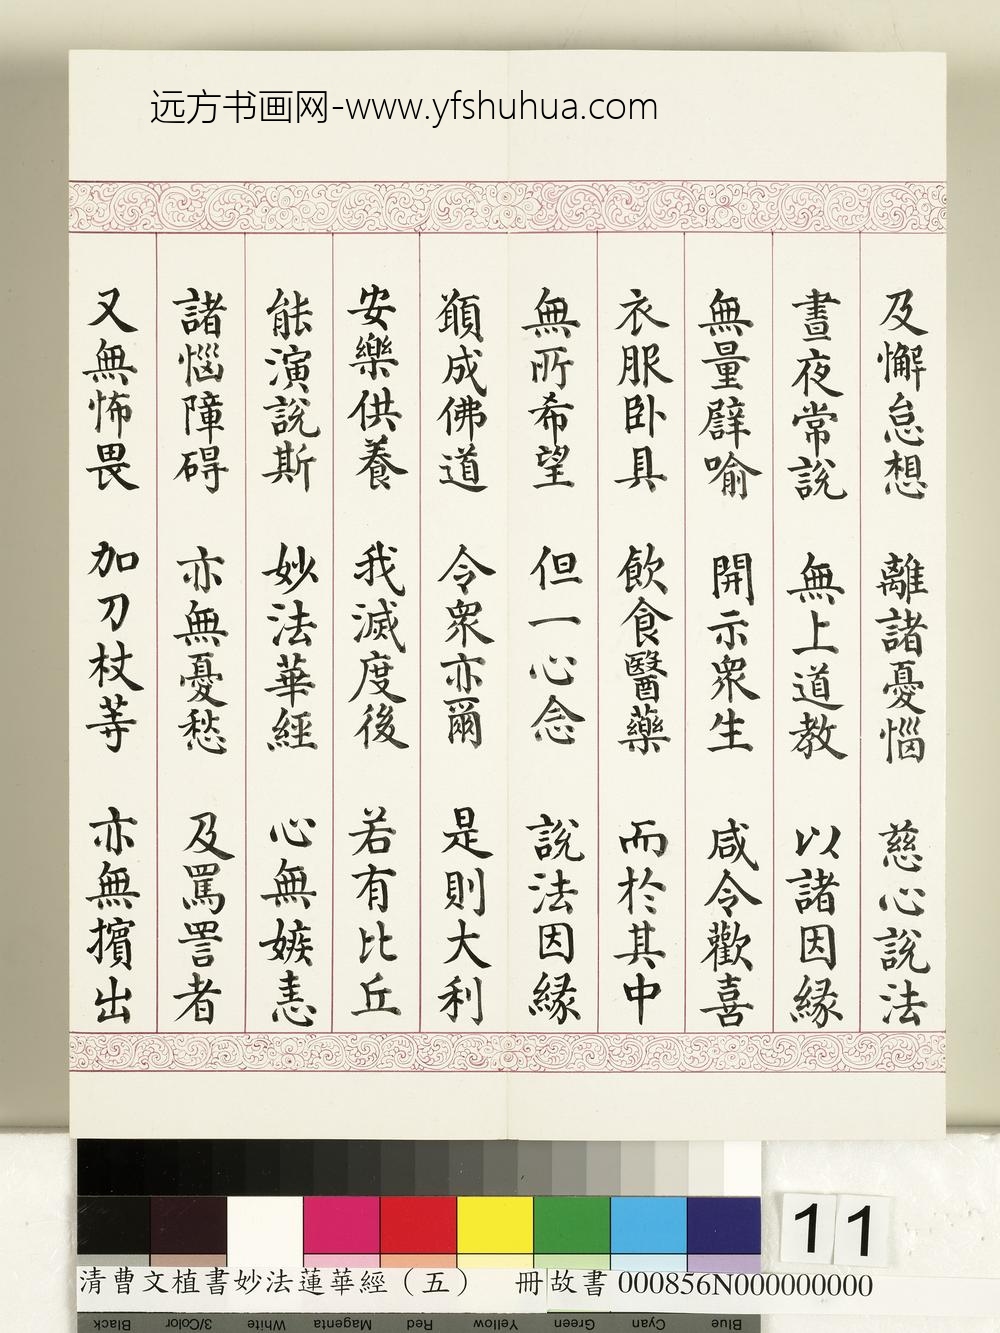 远方书画网-www.yfshuhua.com
及懈怠想 離諸憂惱 慈心說法
晝夜常說 無上道教 以諸因緣
無量譬喻 開示眾生 咸令歡喜
衣服臥具 飲食醫藥 而於其中
無所希望 但一心念 說法因緣
願成佛道 令眾亦爾 是則大利
安樂供養 我滅度後 若有比丘
能演說斯 妙法華經 心無嫉恚
諸惱障碍 亦無憂愁 及罵詈者
又無怖畏 加刀杖等 亦無擯出
11
清曹文植書妙法蓮華經（五） 冊 故書 000856N000000000
Black 3/Color White Magenta Red Yellow Green Cyan Blue